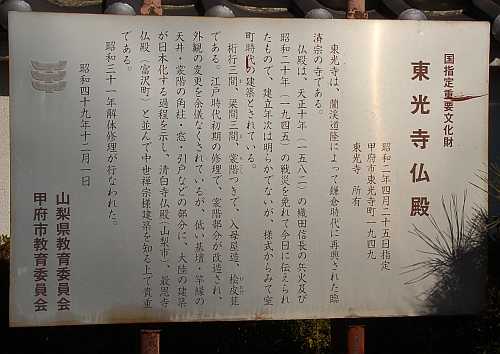 国指定重要文化財
東光寺仏殿
昭和二年四月二十五日指定
甲府市東光寺町一九四九
東光寺 所有
東光寺は、蘭渓道隆によって鎌倉時代に再興された臨
済宗の寺である。
仏殿は、天正十年(一五八二)の織田信長の兵火及び
昭和二十年(一九四五)の戦災を免れて今日に伝えられ
たもので、建立年次は明らかでないが、様式からみて室
町時代の建築とされている。
桁行三間、梁間三間、裳階つきで、入母屋造、桧皮葺
である。江戸時代初期の修理で、裳階部分が改造され、
外観の変更を余儀なくされているが、低い基壇・竿縁の
天井・裳階の角柱・窓・引戸などの部分に、大陸の建築
が日本化する過程を示し、清白寺仏殿(山梨市)、最恩寺
仏殿(富沢町)と並んで中世禅宗様建築を知る上で貴重
である。
昭和三十一年解体修理が行なわれた。
昭和四十九年十二月一日
山梨県教育委員会
甲府市教育委員会